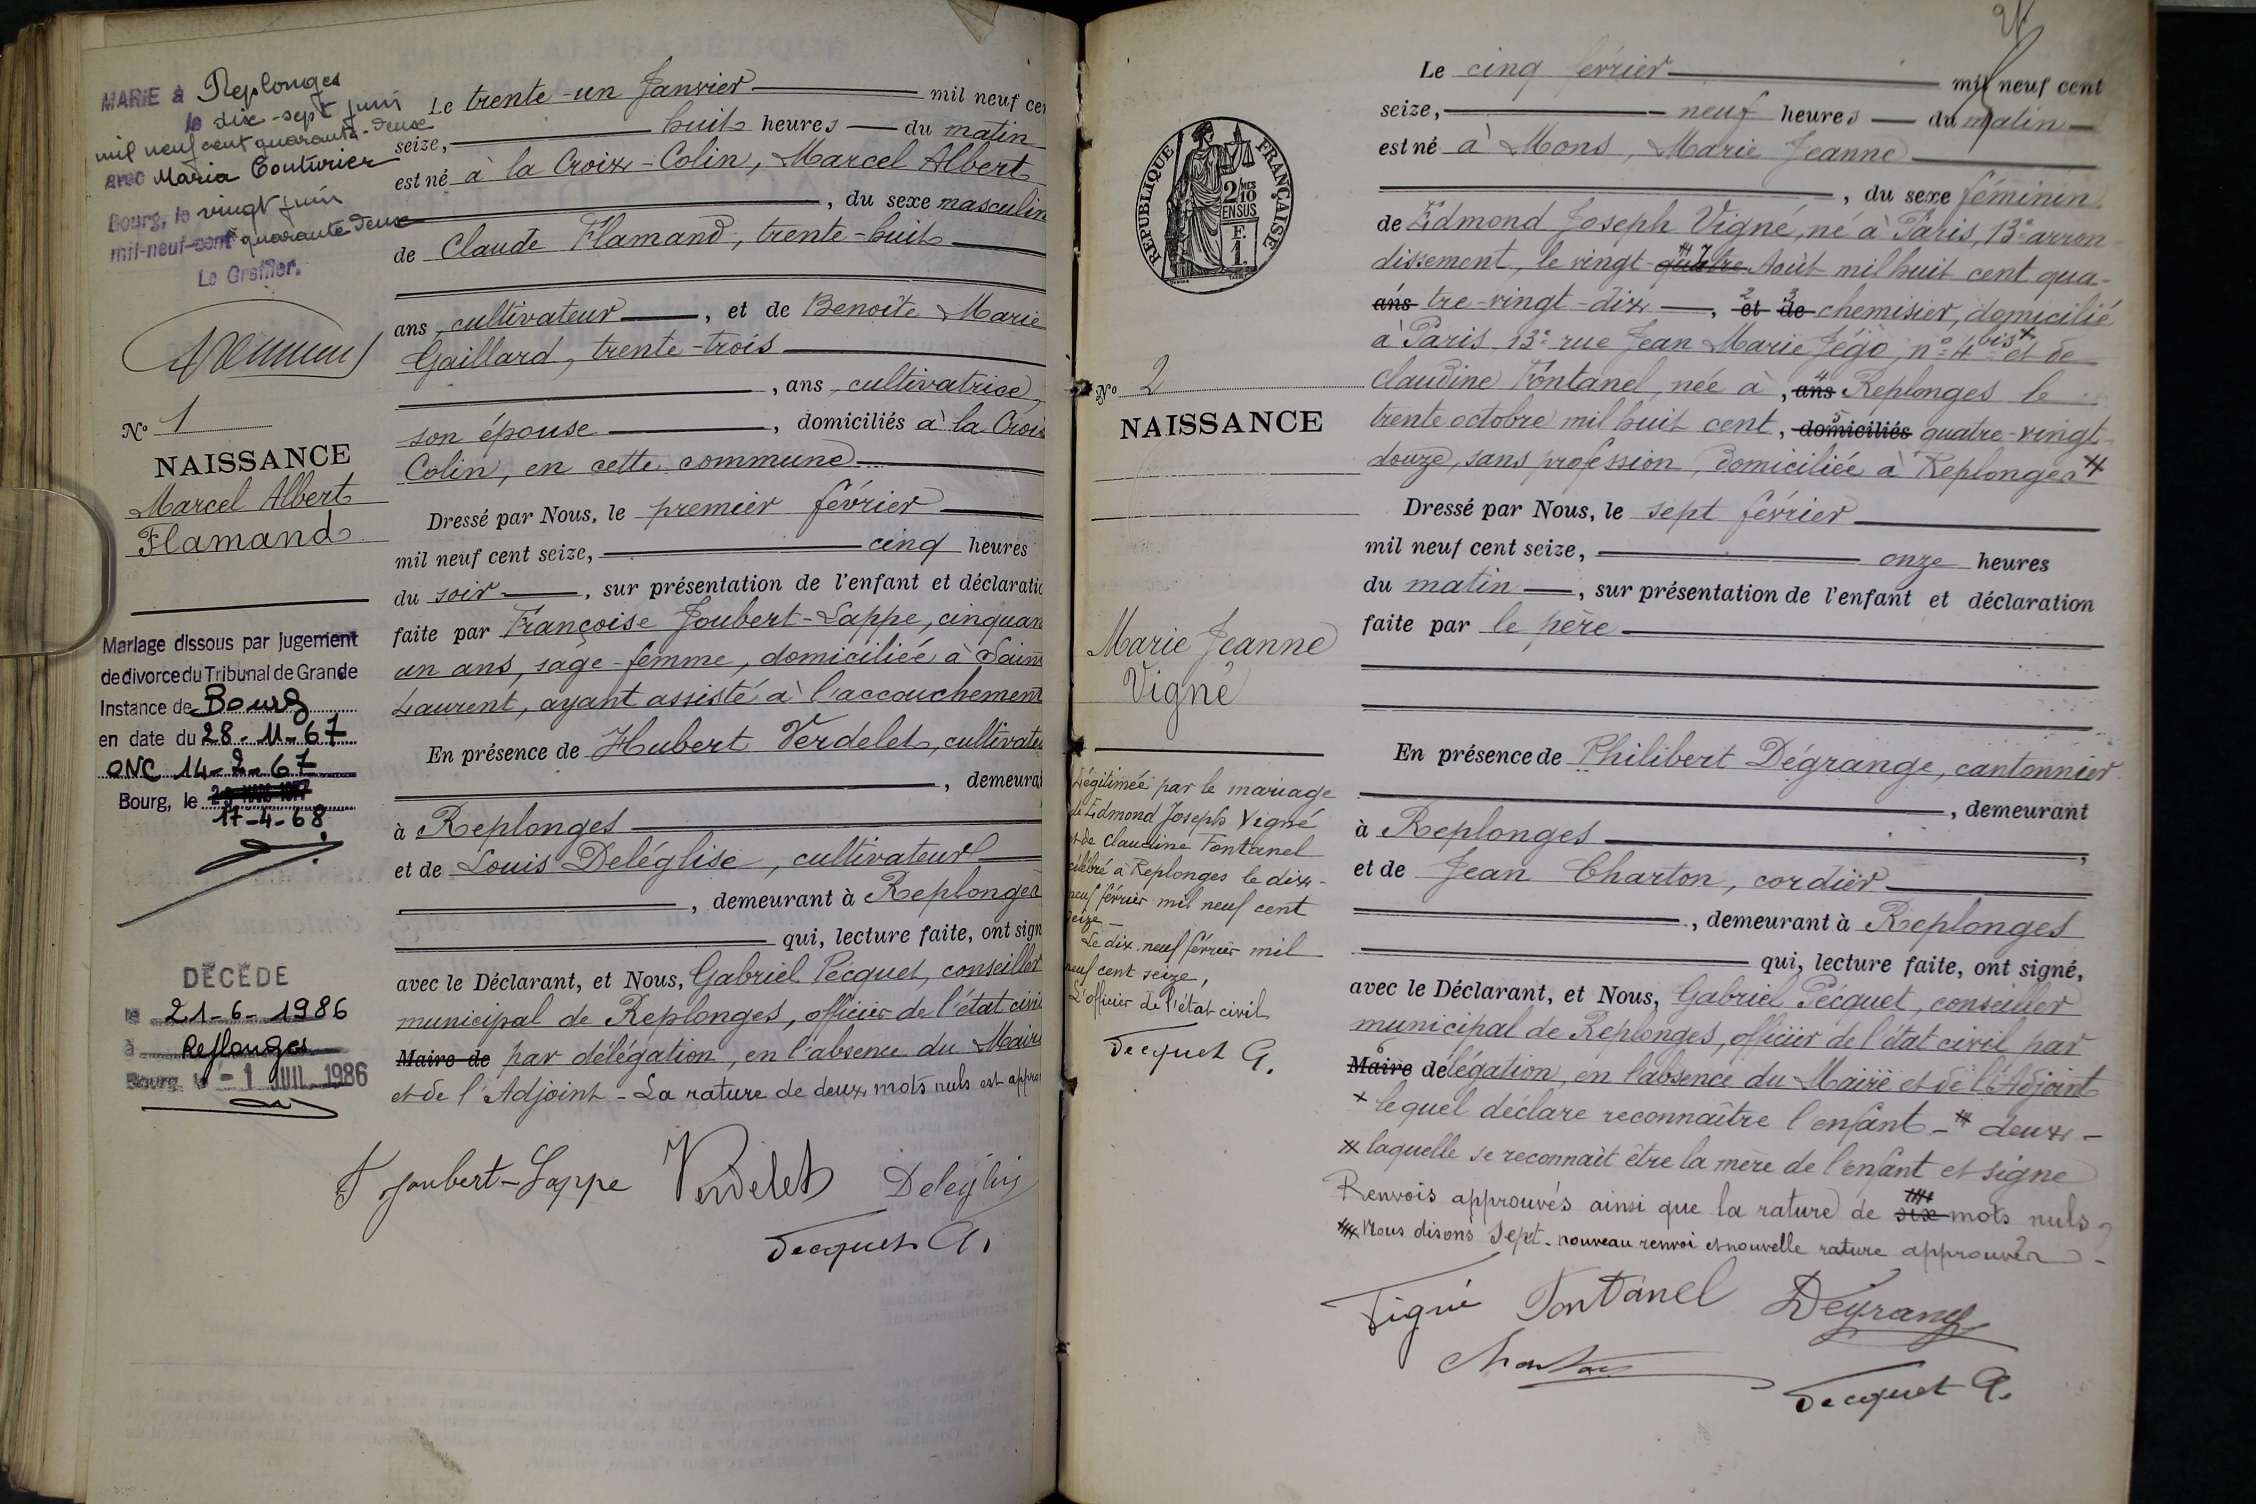 MARIÉ à Replonges
le dix-sept juin
mil neuf cent quarante-deux
avec Maria Couturier
Bourg, le vingt juin
mil-neuf-cent quarante deux
Le Greffier.
N° 1
NAISSANCE
Marcel Albert
Flamand
Mariage dissous par jugement
de divorce du Tribunal de Grande
Instance de Bourg
en date du 28-11-67
ONC 14-2-67
Bourg, le
17-4-68
DÉCÉDÉ
le 21-6-1986
à Replonges
Bourg, le -1 JUIL. 1986
Le trente-un Janvier mil neuf cen
seize, huit heures du matin
est né à la Croix-Colin, Marcel Albert
, du sexe masculin
de Claude Flamand, trente-huit
ans, cultivateur, et de Benoîte Marie
Gaillard, trente-trois
, ans, cultivatrice,
son épouse, domiciliés à la Croix
Colin, en cette commune
Dressé par Nous, le premier février
mil neuf cent seize, cinq heures
du soir, sur présentation de l'enfant et déclaratio
faite par Françoise Joubert-Lappe, cinquan
un ans, sage-femme, domiciliée à Saint
Laurent, ayant assisté à l'accouchement
En présence de Hubert Verdelet, cultivate
, demeura
à Replonges
et de Louis Deléglise, cultivateur
, demeurant à Replonges
qui, lecture faite, ont sign
avec le Déclarant, et Nous, Gabriel Pecquet, conseiller
municipal de Replonges, officier de l'état civil
Maire de par délégation, en l'absence du Maire
et de l'Adjoint - La rature de deux mots nuls est appro
F Joubert-Lappe Verdelet Deléglise
Pecquet G.
Le cinq février mil neuf cent
seize, neuf heures du matin
est né à Mons, Marie Jeanne
, du sexe féminin
de Edmond Joseph Vigné, né à Paris, 13e arron-
dissement, le vingt-quatre Août mil huit cent qua-
ans tre-vingt-dix, et de chemisier, domicilié
à Paris, 13e rue Jean Marie Jégo, n° 4 bis × et de
Claudine Fontanel, née à, ans Replonges le
trente octobre mil huit cent, domiciliés quatre-vingt-
douze, sans profession, domiciliée à Replonges
Dressé par Nous, le sept février
mil neuf cent seize, onze heures
du matin, sur présentation de l'enfant et déclaration
faite par le père
En présence de Philibert Dégrange, cantonnier
, demeurant
à Replonges,
et de Jean Charton, cordier
, demeurant à Replonges
qui, lecture faite, ont signé,
avec le Déclarant, et Nous, Gabriel Pecquet, conseiller
municipal de Replonges, officier de l'état civil par
Maire délégation, en l'absence du Maire et de l'Adjoint
× lequel déclare reconnaître l'enfant - deux -
laquelle se reconnaît être la mère de l'enfant et signe
Renvois approuvés ainsi que la rature de six mots nuls
Nous disons Sept. nouveau renvoi et nouvelle rature approuvés -
Vigné Fontanel Dégrange
Charton
Pecquet G.
RÉPUBLIQUE FRANÇAISE
2/10
EN SUS
E.
1.
N° 2
NAISSANCE
Marie Jeanne
Vigné
Légitimée par le mariage
de Edmond Joseph Vigné
et de Claudine Fontanel
célébré à Replonges le dix-
neuf février mil neuf cent
seize -
Le dix-neuf février mil
neuf cent seize,
L'officier de l'état civil
Pecquet G.